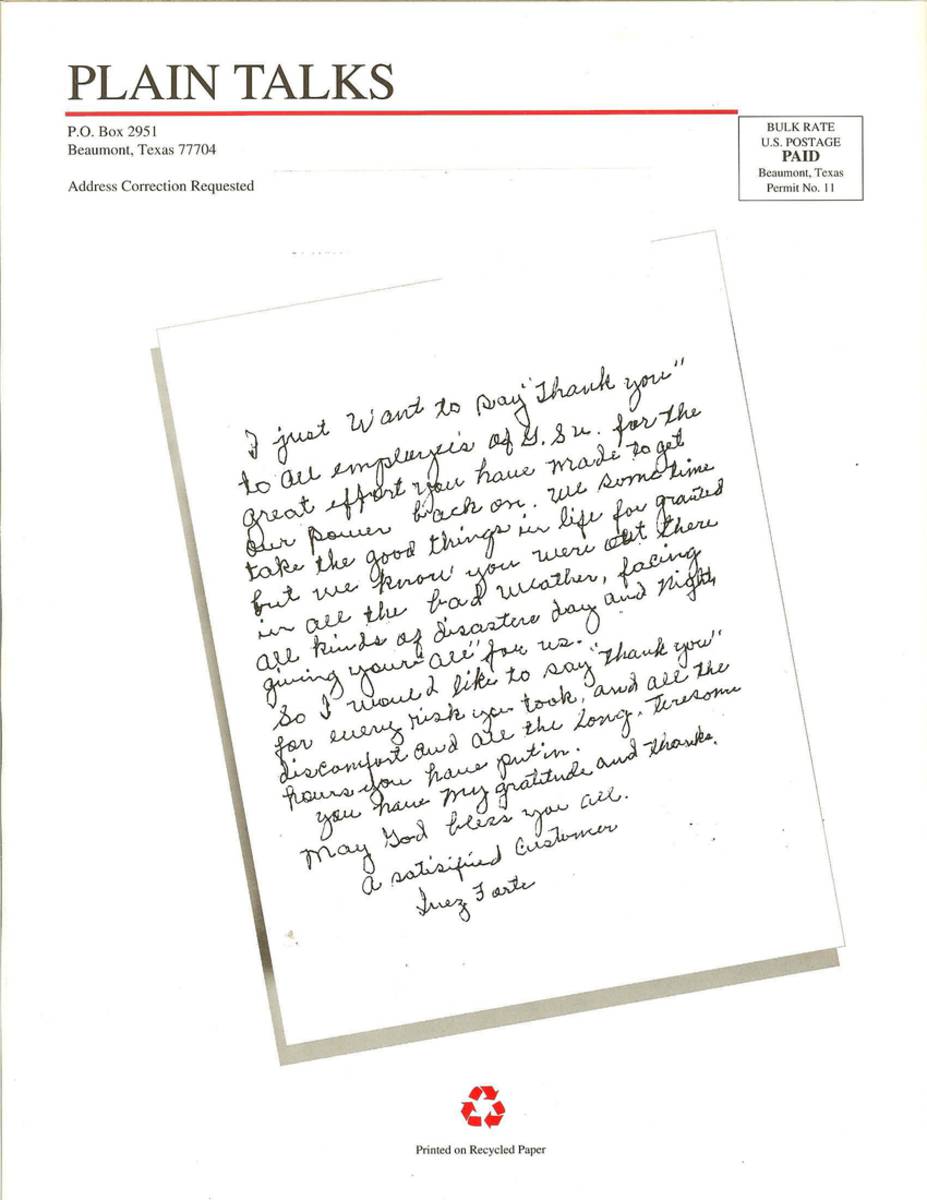 PLAIN TALKS
P.O. Box 2951
Beaumont, Texas 77704
Address Correction Requested
BULK RATE
U.S. POSTAGE
PAID
Beaumont, Texas
Permit No. 11
I just Want to say "Thank you"
to all employee's of G.S.U. for the
great effort you have made to get
our power back on. We sometime
take the good things in life for granted
but we know you were out there
in all the bad weather, facing
all kinds of disasters day and Night,
giving your "all" for us.
So I would like to say "thank you"
for every risk you took, and all the
discomfort and all the Long, Teresome
hours you have put in.
You have my gratitude and thanks.
May God bless you all.
A satisified Customer
Inez Forte
Printed on Recycled Paper